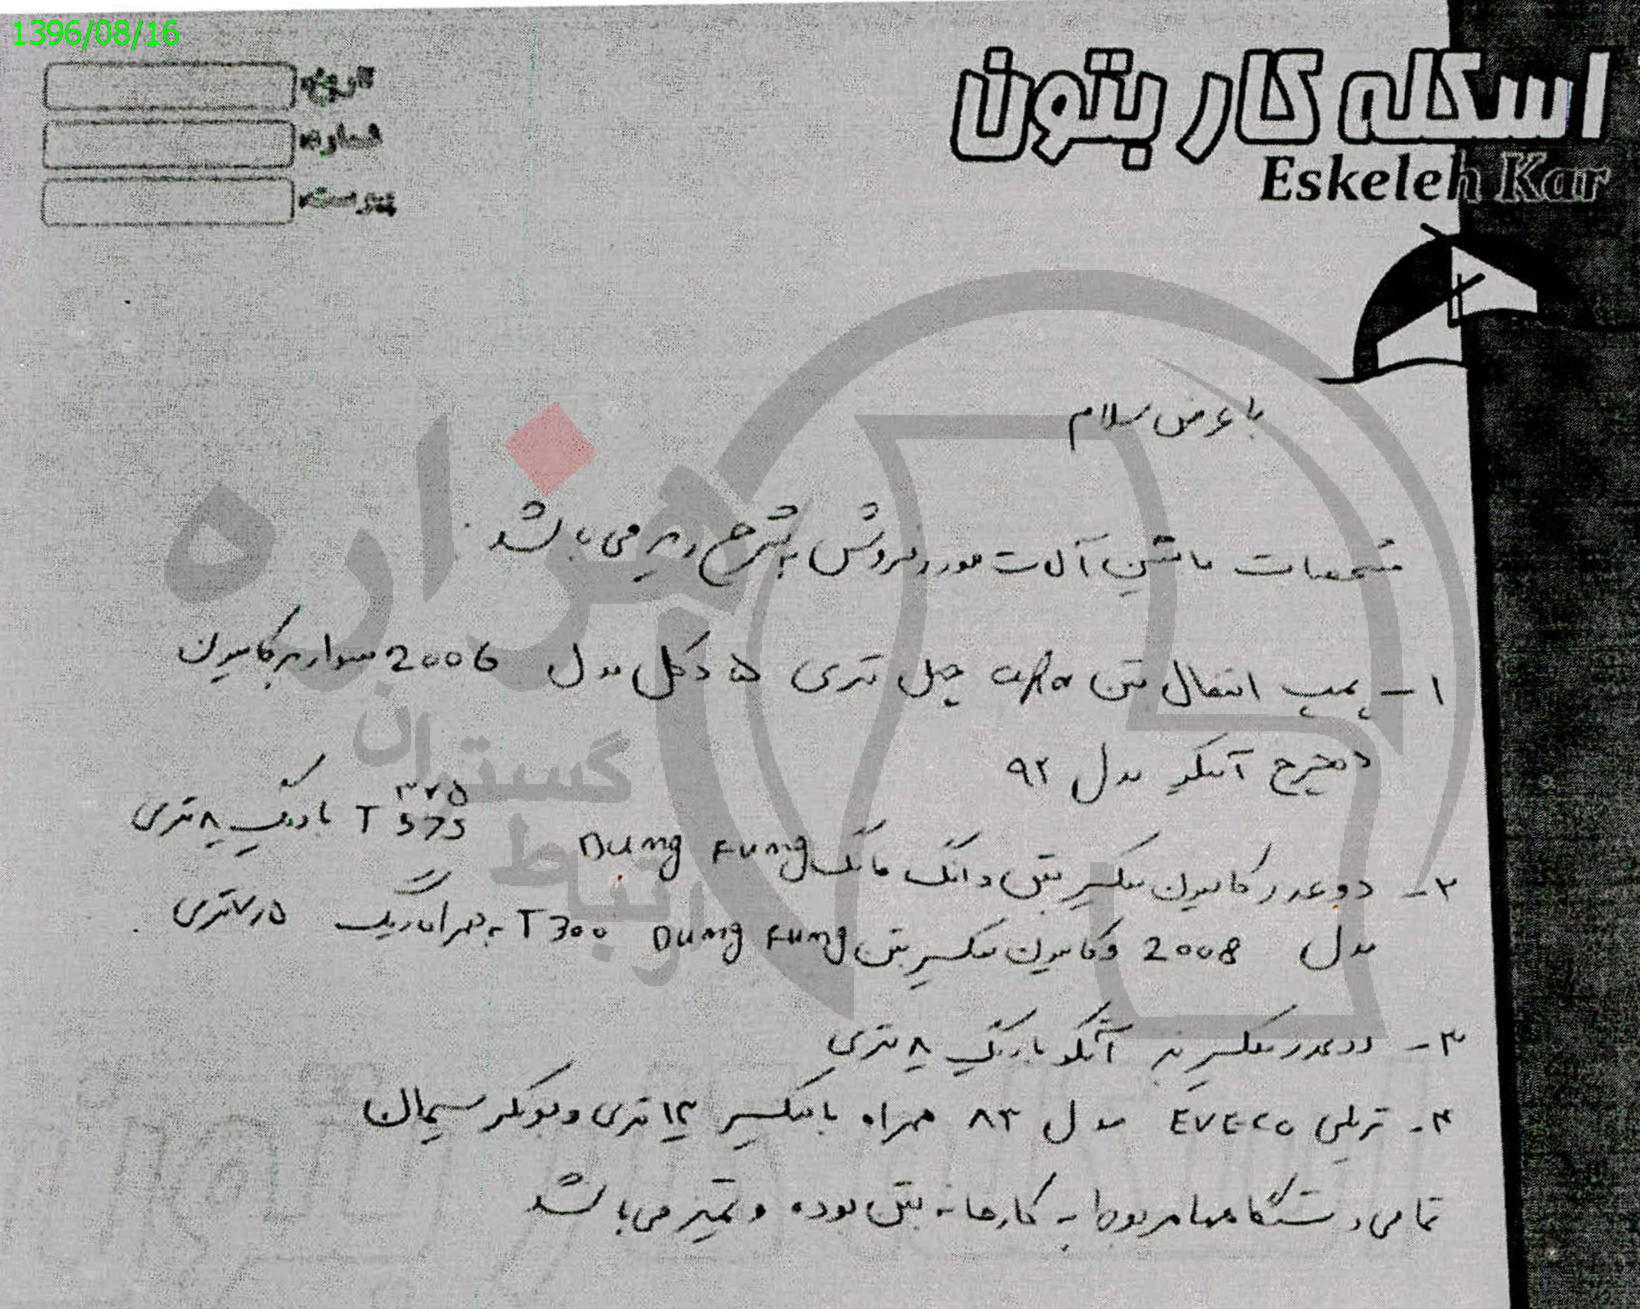 1396/08/16
تاریخ
شماره
پیوست
اسکله کار بتون
Eskeleh Kar
هزاره
گستران
ارتباط
با عرض سلام
مشخصات ماشین آلات مورد فروش به شرح زیر می باشد
۱- پمپ انتقال بتن چهل متری ۵ دکل مدل 2006 سوار بر کامیون
ده چرخ آمیکو مدل ۹۲
۲- دو عدد کامیون میکسر بتن دانگ فانگ Dung Fung T 375 ۳۷۵ با دیگ ۸ متری
مدل 2008 و کامیون میکسر بتن Dung Fung T 300 به همراه دیگ ۷٫۵ متری
۳- دو عدد میکسر بنز آتگو با دیگ ۸ متری
۴- تریلی EVECO مدل ۸۳ همراه با میکسر ۱۲ متری و بونکر سیمان
تمامی دستگاهها مربوط به کارخانه بتن بوده و تمیز می باشد